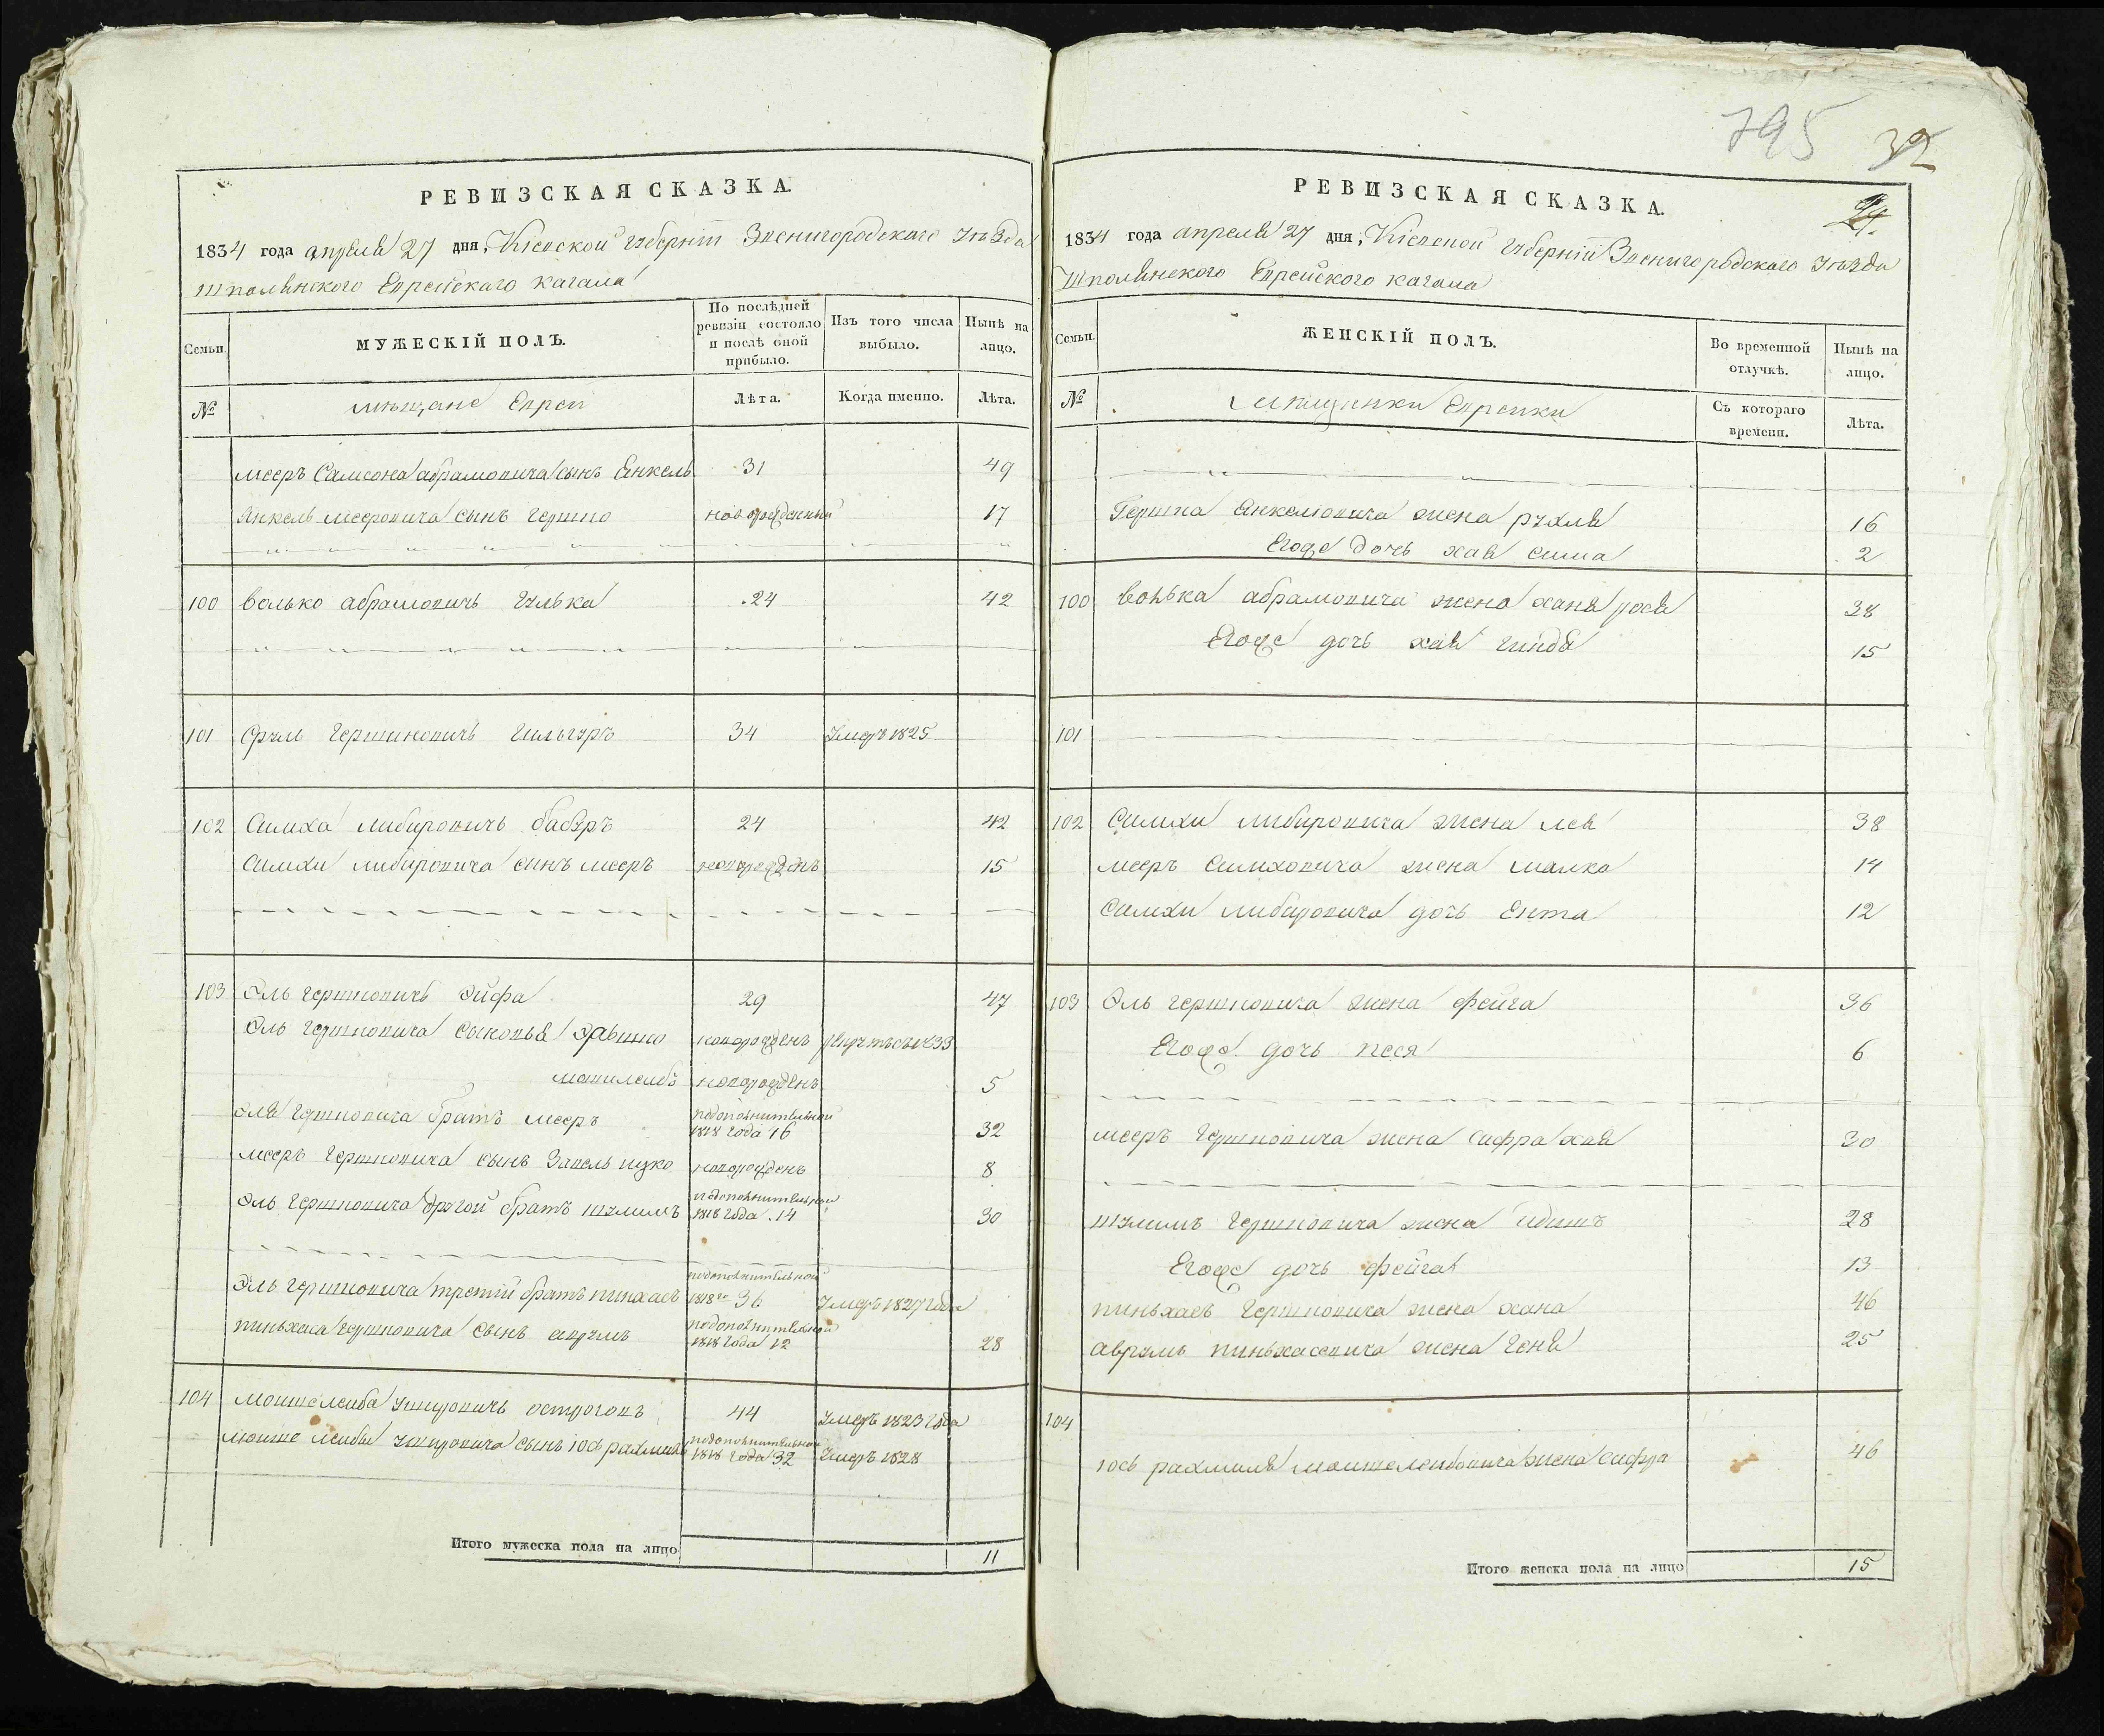 РЕВИЗСКАЯ СКАЗКА.
1834 года апреля 27 дня, Кіевской губерніи Звенигородскаго уѣзда
Шполянского Еврейскаго кагала
Семьи.
МУЖЕСКІЙ ПОЛЪ.
По послѣдней ревизіи состояло и послѣ оной прибыло.
Изъ того числа выбыло.
Нынѣ на лицо.
№
мѣщане Евреи
Лѣта.
Когда именно.
Лѣта.
мееръ Самсона абрамовича сынъ Янкель 31 49
Янкель мееровича сынъ гершко новорожденный 17
100 волько абрамовичъ гулька 24 42
101 Сруль гершковичъ 34 умеръ 1825
102 Симха либировичъ баберъ 24 42
Симхи либировича сынъ мееръ новорожденъ 15
103 Эль гершковичъ Эйфа 29 47
Эль гершковича сыновья новорожденъ 1833
новорожденъ 5
Эля гершковича братъ мееръ
подополнительной 1818 года 16 32
мееръ гершковича сынъ новорожденъ 8
Эль гершковича другой братъ шулимъ
подополнительной 1818 года 14 30
Эль гершковича третій братъ пинхасъ
подополнительной 1818 го 36 умеръ 1827 года
пиньхаса гершковича сынъ аврумъ
подополнительной 1818 года 12 28
104 мошко лейба остроговъ 44 умеръ 1823 года
мошко лейбы сынъ
подополнительной 1818 года 32 умеръ 1828
Итого мужеска пола на лицо 11
795 32
24.
РЕВИЗСКАЯ СКАЗКА.
1834 года апреля 27 дня, Кіевской губерніи Звенигородскаго уѣзда
Шполянского Еврейского кагала
Семьи.
ЖЕНСКІЙ ПОЛЪ.
Во временной отлучкѣ.
Нынѣ на лицо.
№
мѣщанки Еврейки
Съ котораго времени.
Лѣта.
Гершка Янкелювича жена рухля 16
Егоже дочь хая сима 2
100 волька абрамовича жена ханя рося 38
Егоже дочь хая гинда 15
101
102 Симхи либировича жена лея 38
мееръ Симховича жена малка 14
Симхи либировича дочь Ента 12
103 Эль гершковича жена фейга 36
Егоже дочь песя 6
мееръ гершковича жена сифра хая 30
шулимъ гершковича жена 28
Егоже дочь фейга 13
пиньхасъ гершковича жена хана 46
аврумъ пиньхасовича жена геня 25
104
іось рахмиля мошколейбовича жена сифра 46
Итого женска пола на лицо 15